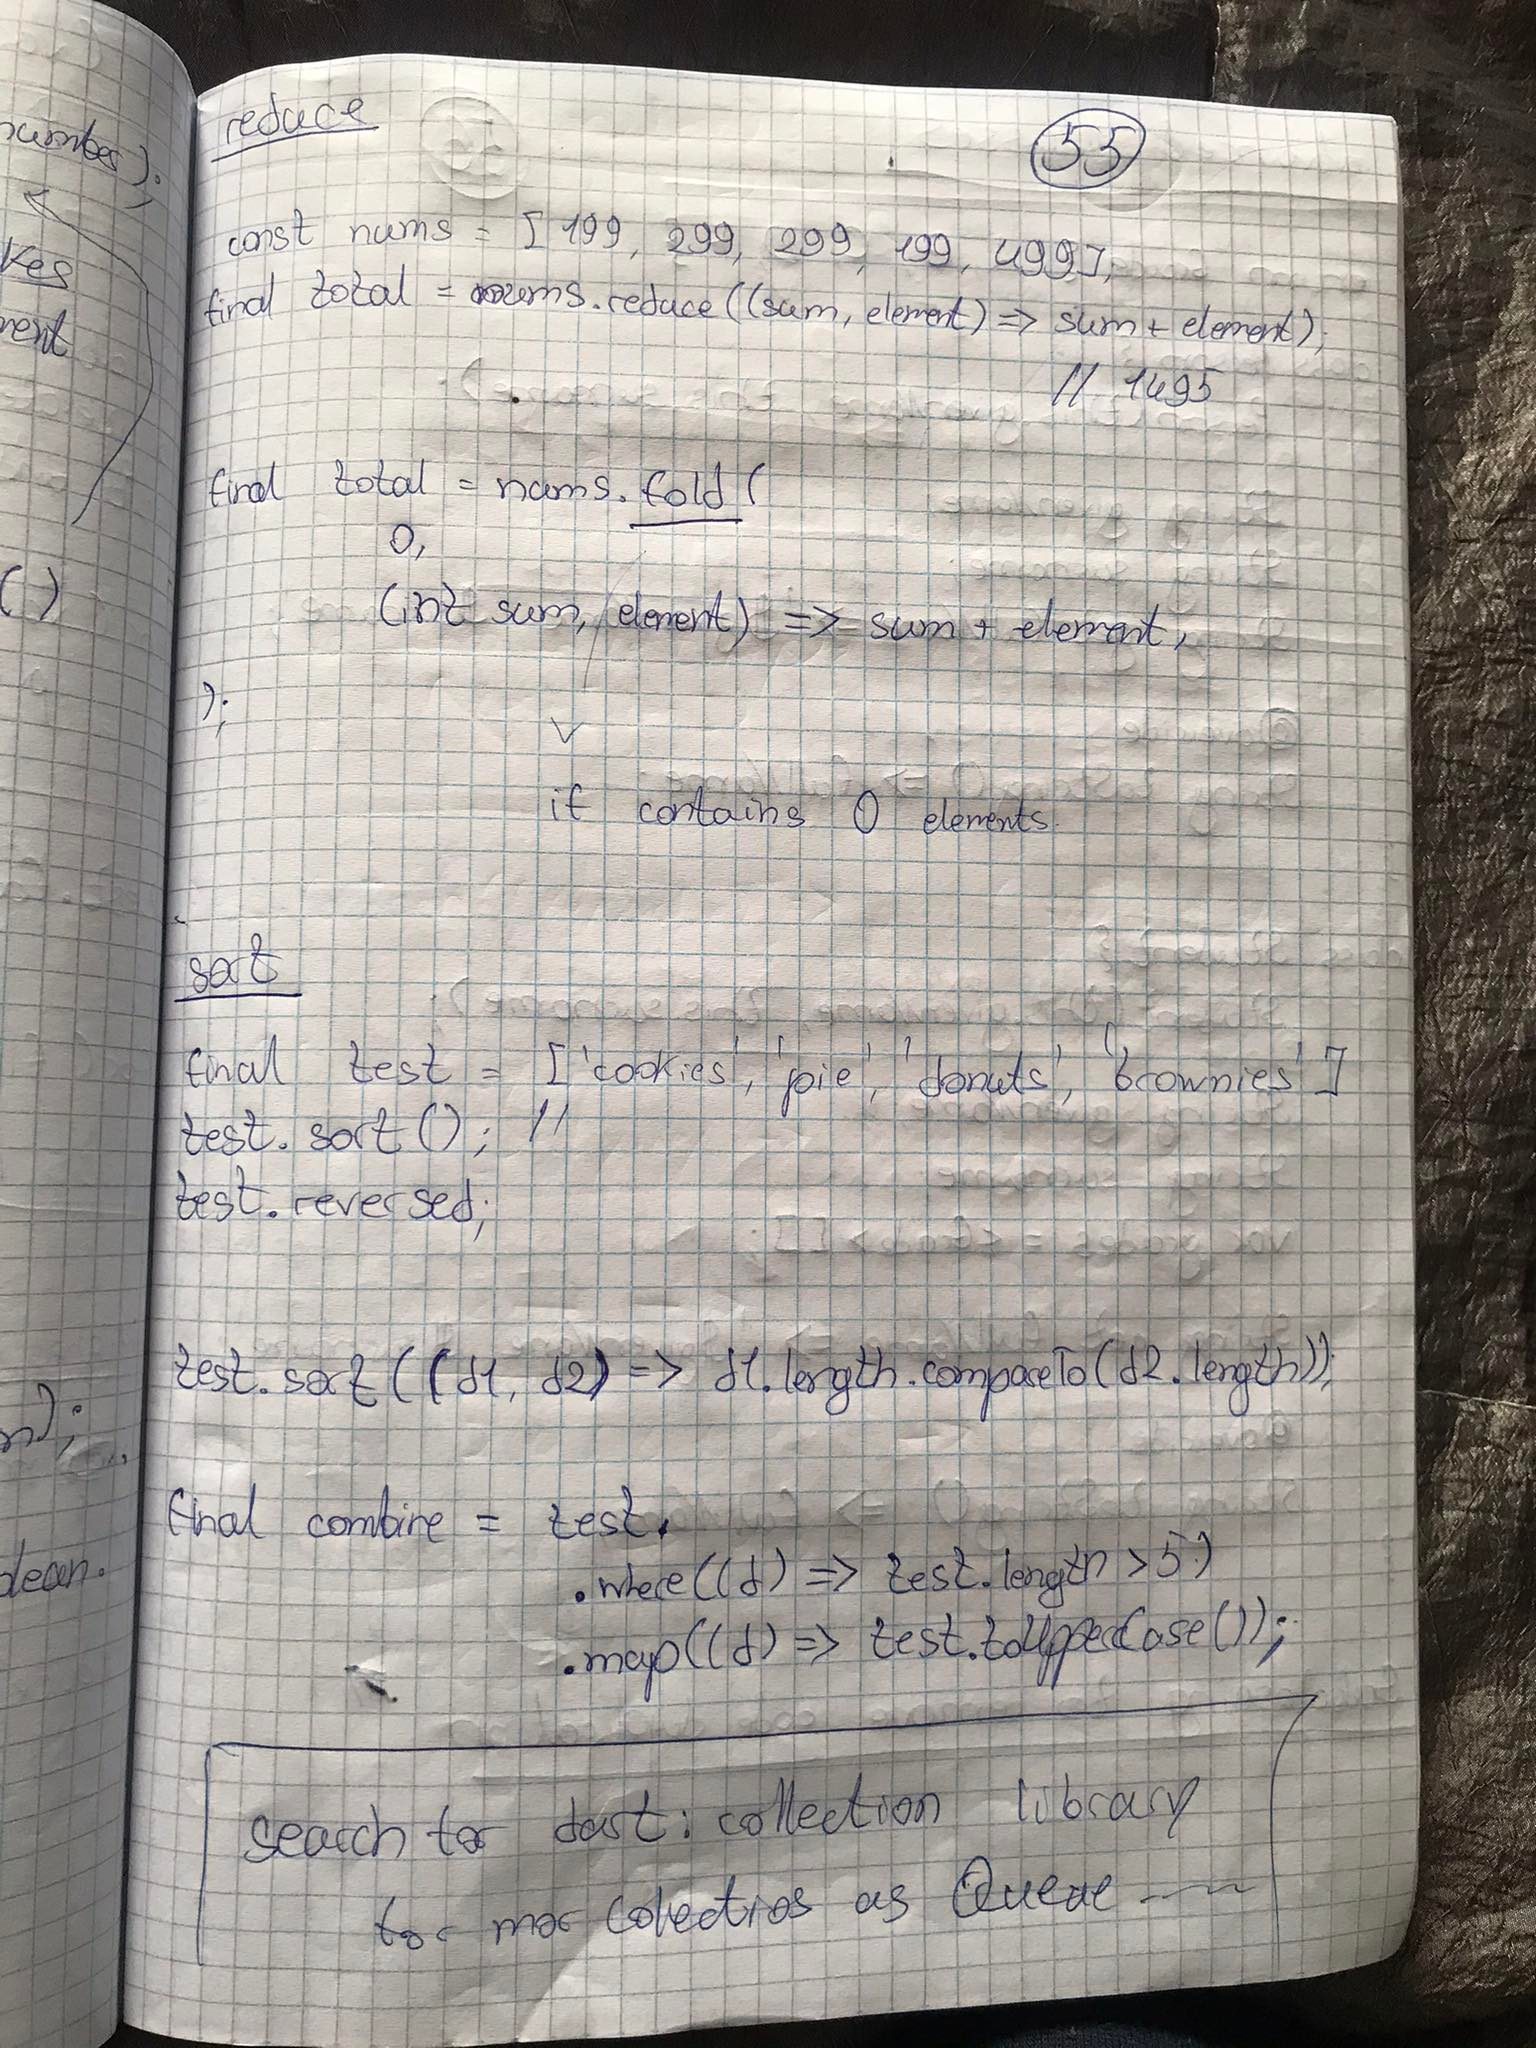 number);
kes
ment
()
n);
olean.
reduce
55
const nums = [199, 299, 299, 199, 499];
final total = nums.reduce((sum, element) => sum + element);
// 1495
final total = nums.fold(
0,
(int sum, element) => sum + element,
);
if contains 0 elements
sort
final test = ['cookies', 'pie', 'donuts', 'brownies']
test.sort(); //
test.reversed;
test.sort((d1, d2) => d1.length.compareTo(d2.length));
final combine = test.
.where((d) => test.length > 5)
.map((d) => test.toUpperCase());
search for dart: collection library
for mor Colectios as Queue